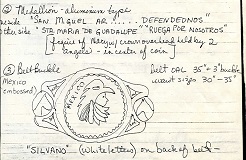 ② Medallion - aluminum type
side "SAN MIGUEL AR ..... DEFENDEDNOS"
other side "STA MARIA DE GUADALUPE" "RUEGA POR NOSOTROS"
figure of Mary w/ crown overhead held by 2
angels - in center of coin
③ Belt Buckle
MEXICO
embossed)
MEXICO
Belt OAL 35" + 3" buckle
waist sizes 30" - 35"
"SILVANO" (white letters) on back of belt -